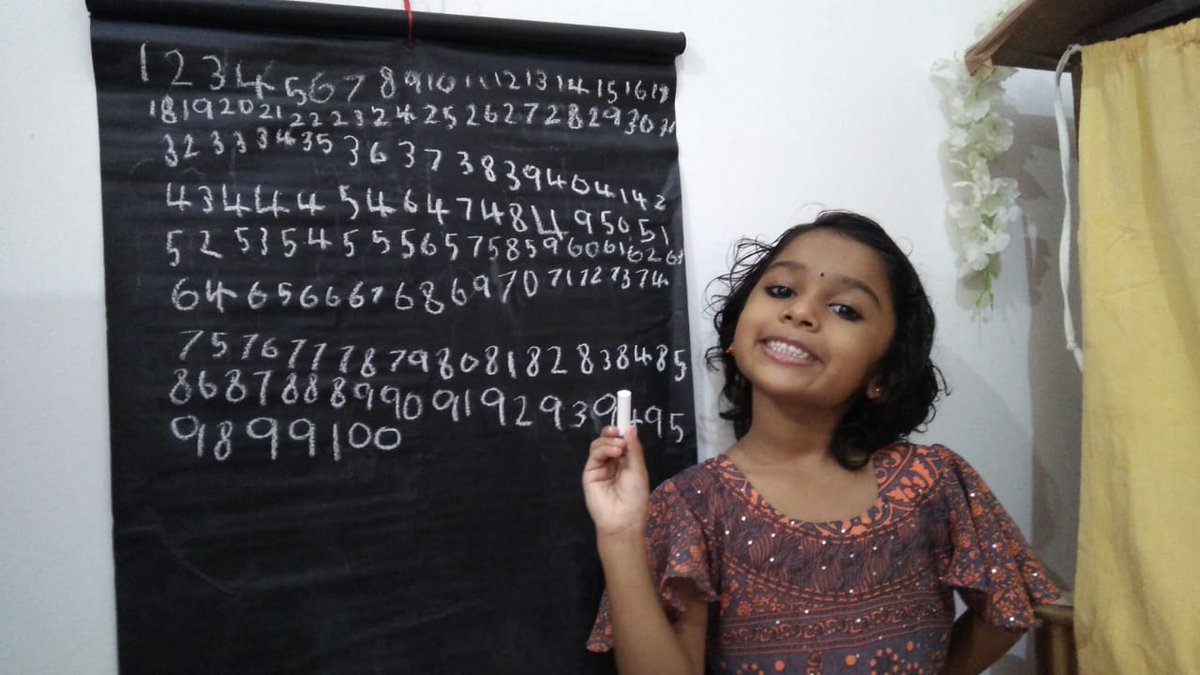 1 2 3 4 5 6 7 8 9 10 11 12 13 14 15 16
18 19 20 21 22 23 24 25 26 27 28 29 30 31
32 33 34 35 36 37 38 39 40 41 42
43 44 45 46 47 48 49 50 51
52 53 54 55 56 57 58 59 60 61 62 63
64 65 66 67 68 69 70 71 72 73 74
75 76 77 78 79 80 81 82 83 84 85
86 87 88 89 90 91 92 93 94 95
98 99 100